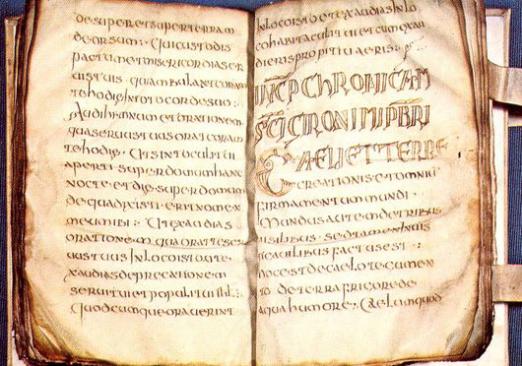 desuper et super terram
deorsum : Qui custodis
pactum et misericordia ser
uis tuis qui ambulant coram
te hodie in toto corde suo :
Audi hymnum et orationem
qua seruus tuus orat coram
te hodie . Ut sint oculi tui
aperti super domum hanc
nocte et die super domum
de qua dixisti erit nomen
meum ibi : Ut exaudias
orationem qua orat te ser
uus tuus in loco isto ut e
xaudias deprecationem
serui tui et populi tui isl :
Quodcumque orauerint
in loco isto et exaudias in lo
co habitaculi tui et cum exau
dieris propitiaeris :
INCP CHRONICAM
SCI GIRONIMI PBRI
CAELI ET TERRE
creationis et omni
firmamentum mundi .
Mundus autem de tribus
uisibilibus sed tamen
factus est :
hoc est de caelo tegumen
to de terra frigore de
aqua humore : Caelum quod